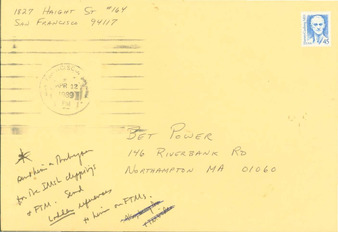 1827 HAIGHT ST #164
SAN FRANCISCO 94117
45
APR 12
1989
PM
BET POWER
146 RIVERBANK RD
NORTHAMPTON MA 01060
for the IMSL clippings
+ FTM. Send
Ladder references
to him on FTMs.